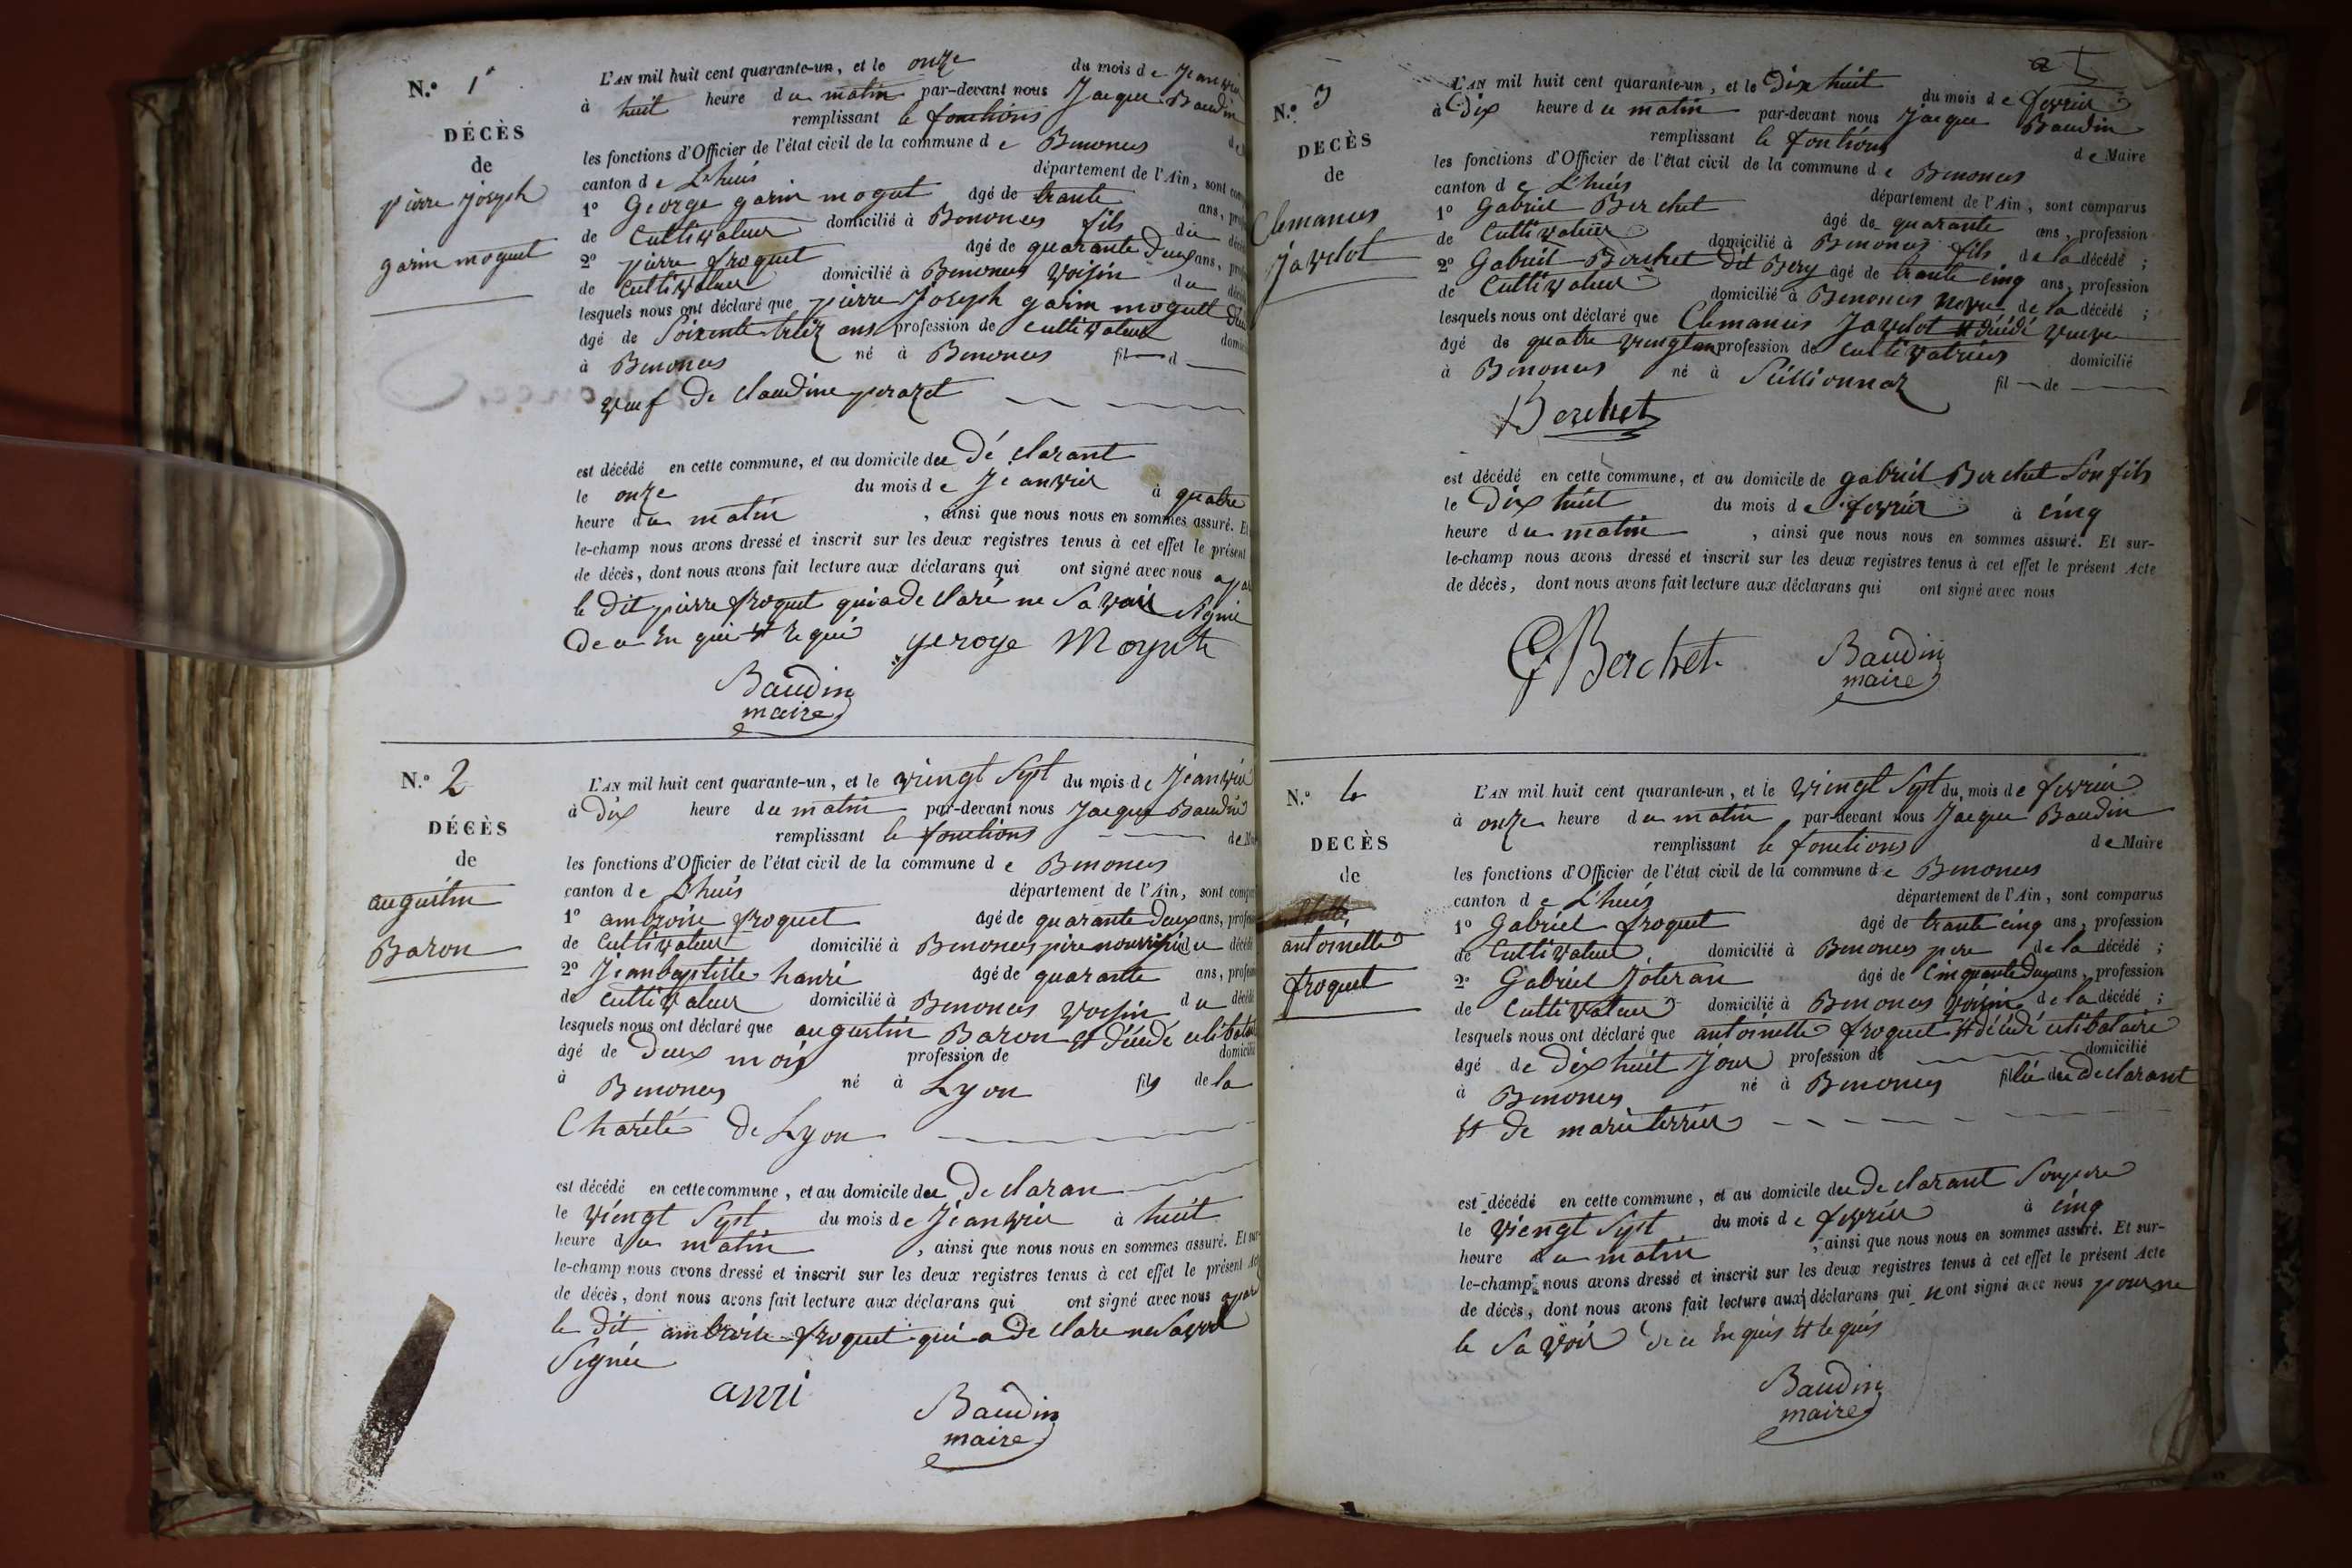 N.º 1º
DÉCÈS
de
pierre joseph
garin moguet
L'AN mil huit cent quarante-un, et le onze du mois de Jeanvier
à huit heure du matin par-devant nous Jaeque Baudin
remplissant le fonctions
les fonctions d'Officier de l'état civil de la commune de Benonces
canton de L'huis département de l'Ain, sont
1º George garin mogut âgé de trante ans,
de Cultivateur domicilié à Benonces fils du
2º pierre froquet âgé de quarante deux ans,
de Cultivateur domicilié à Benonces Voisin du
lesquels nous ont déclaré que pierre Joseph garin mogutt
âgé de Soixente treiz ans profession de cultivateur
à Benonces né à Benonces fil d
veuf de claudine perazet
est décédé en cette commune, et au domicile du Dé clarant
le onze du mois de Jeanvier à quatre
heure du matin , ainsi que nous nous en sommes assuré. Et
le-champ nous avons dressé et inscrit sur les deux registres tenus à cet effet le présent
de décès, dont nous avons fait lecture aux déclarans qui ont signé avec nous
le dit pierre froquet qui a de claré ne Savoir Signié
De a En qui et Requi geroge Mogute
Baudin
maire
N.º 2
DÉCÈS
de
auguistin
Baron
L'AN mil huit cent quarante-un, et le viengt Sept du mois de Jeanvier
à Dix heure du matin par-devant nous Jaeque Baudin
remplissant le fonctions
les fonctions d'Officier de l'état civil de la commune de Benonces
canton de L'huis département de l'Ain, sont
1º ambroise froquet âgé de quarante Deux ans,
de Cultivateur domicilié à Benonces père nourricié du
2º Jeanbaptiste hanri âgé de quarante ans,
de Cultivateur domicilié à Benonces Voisin du
lesquels nous ont déclaré que auguistin Baron et décédé
âgé de Deux mois profession de
à Benonces né à Lyon fils de la
Charité de Lyon
est décédé en cette commune, et au domicile du De claran
le viengt Sept du mois de Jeanvier à huit
heure du matin , ainsi que nous nous en sommes assuré. Et
le-champ nous avons dressé et inscrit sur les deux registres tenus à cet effet le présent
de décès, dont nous avons fait lecture aux déclarans qui ont signé avec nous
le dit ambroise froquet qui a de clare ne Savoir
Signée
anri
Baudin
maire
N.º 3
DECÈS
de
Clemances
Javelot
L'AN mil huit cent quarante-un, et le Dix huit du mois de fevrier
à Dix heure du matin par-devant nous Jaeque Baudin
remplissant le fontions de Maire
les fonctions d'Officier de l'état civil de la commune de Benonces
canton de L'huis département de l'Ain, sont comparus
1º Gabriel Berchet âgé de quarante ans, profession
de Cultivateur domicilié à Benonces fils de la décédé ;
2º Gabriel Berchet dit Bery âgé de trante cinq ans, profession
de Cultivateur domicilié à Benonces neveu de la décédé ;
lesquels nous ont déclaré que Clemances Javelot et décédé veuve
âgé de quatre vingt an profession de cultivatrices domicilié
à Benonces né à Seillionnaz fil de
Berchet
est décédé en cette commune, et au domicile de gabriel Berchet Son fils
le Dix huit du mois de fevrier à cinq
heure du matin , ainsi que nous nous en sommes assuré. Et sur-
le-champ nous avons dressé et inscrit sur les deux registres tenus à cet effet le présent Acte
de décès, dont nous avons fait lecture aux déclarans qui ont signé avec nous
G Berchet Baudin
maire
N.º 4
DECÈS
de
antoinette
froquet
L'AN mil huit cent quarante-un, et le viengt Sept du mois de fevrier
à onze heure du matin par-devant nous Jaeque Baudin
remplissant le fonctions de Maire
les fonctions d'Officier de l'état civil de la commune de Benonces
canton de L'huis département de l'Ain, sont comparus
1º Gabriel froquet âgé de trante cinq ans, profession
de Cultivateur domicilié à Benonces pere de la décédé ;
2º Gabriel Joteran âgé de Cinquante Deux ans, profession
de Cultivateur domicilié à Benonces Voisin de la décédé ;
lesquels nous ont déclaré que antoinette froquet et décédé celibataire
âgé de Dix huit Jour profession de domicilié
à Benonces né à Benonces fillie du De clarant
et de marie terrier
est décédé en cette commune, et au domicile du De clarant Son pere
le viengt Sept du mois de fevrier à cinq
heure du matin , ainsi que nous nous en sommes assuré. Et sur-
le-champ nous avons dressé et inscrit sur les deux registres tenus à cet effet le présent Acte
de décès, dont nous avons fait lecture aux déclarans qui nont signé avec nous pour ne
le Savoir de ce Enquis et Requis
Baudin
maire